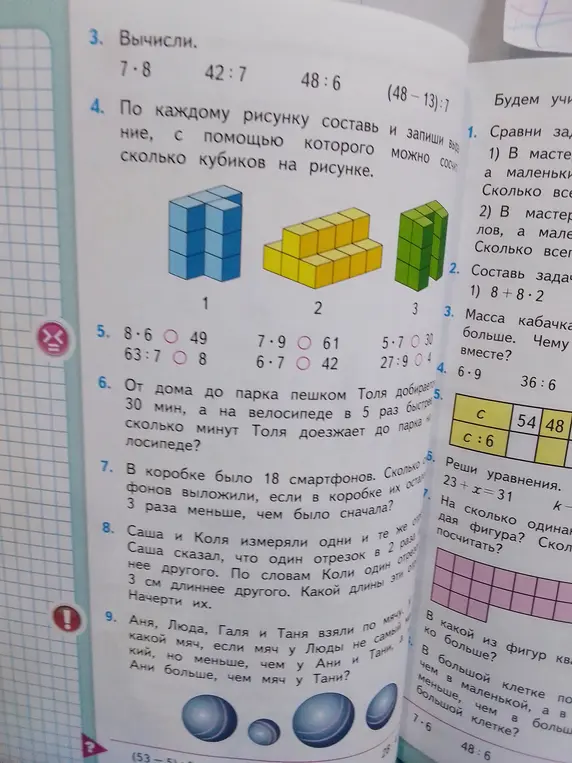 3. Вычисли.
7 · 8 42 : 7 48 : 6 (48 − 13) : 7
4. По каждому рисунку составь и запиши
ние, с помощью которого можно
сколько кубиков на рисунке.
1 2 3
5. 8 · 6 ○ 49 7 · 9 ○ 61 5 · 7 ○ 30
63 : 7 ○ 8 6 · 7 ○ 42 27 : 9 ○ 4
6. От дома до парка пешком Толя
30 мин, а на велосипеде в 5 раз
сколько минут Толя доезжает до парка
лосипеде?
7. В коробке было 18 смартфонов. Сколько
фонов выложили, если в коробке их
3 раза меньше, чем было сначала?
8. Саша и Коля измеряли одни и те же
Саша сказал, что один отрезок в 2 раза
нее другого. По словам Коли один
3 см длиннее другого. Какой длины эти
Начерти их.
9. Аня, Люда, Галя и Таня взяли по мячу.
какой мяч, если мяч у Люды не самый
кий, но меньше, чем у Ани и Тани, а
Ани больше, чем мяч у Тани?
(53 − 5)
Будем
1. Сравни
1) В
а
Сколько
2) В
лов, а
Сколько
2. Составь
1) 8 + 8 · 2
3. Масса
больше. Чему
вместе?
4. 6 · 9 36 : 6
5. c 54 48
c : 6
6. Реши уравнения.
23 + x = 31 k −
7. На сколько
дая фигура?
посчитать?
В какой из фигур
ко больше?
В большой клетке
чем в маленькой, а в
меньше, чем в
большой клетке?
7 · 6 48 : 6